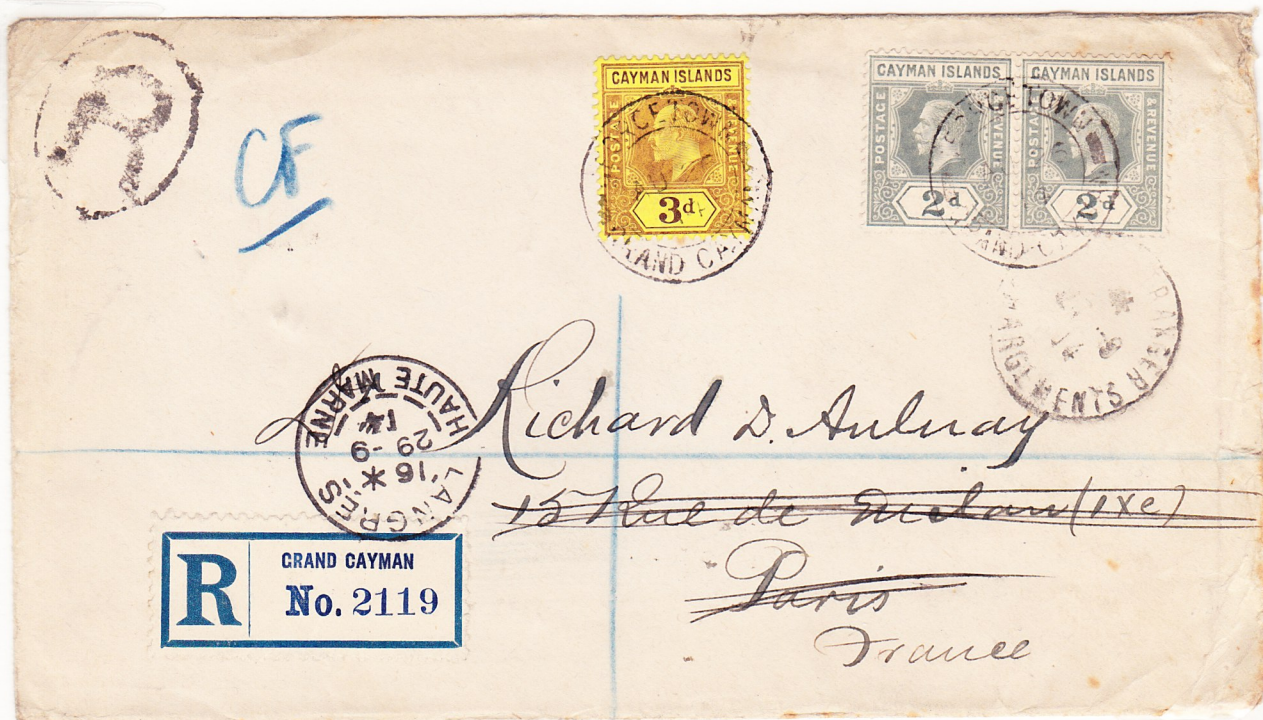 R
CF
CAYMAN ISLANDS
POSTAGE & REVENUE
3d
CAYMAN ISLANDS
POSTAGE & REVENUE
2d
CAYMAN ISLANDS
POSTAGE & REVENUE
2d
GEORGETOWN
GRAND CAYMAN
GEORGETOWN
GRAND CAYMAN
CHARGEMENTS
LANGRES
'16 *
29 -9
14
HAUTE MARNE
Richard D. Aulnay
15 Rue de Milan (IXe)
Paris
France
R
GRAND CAYMAN
No. 2119